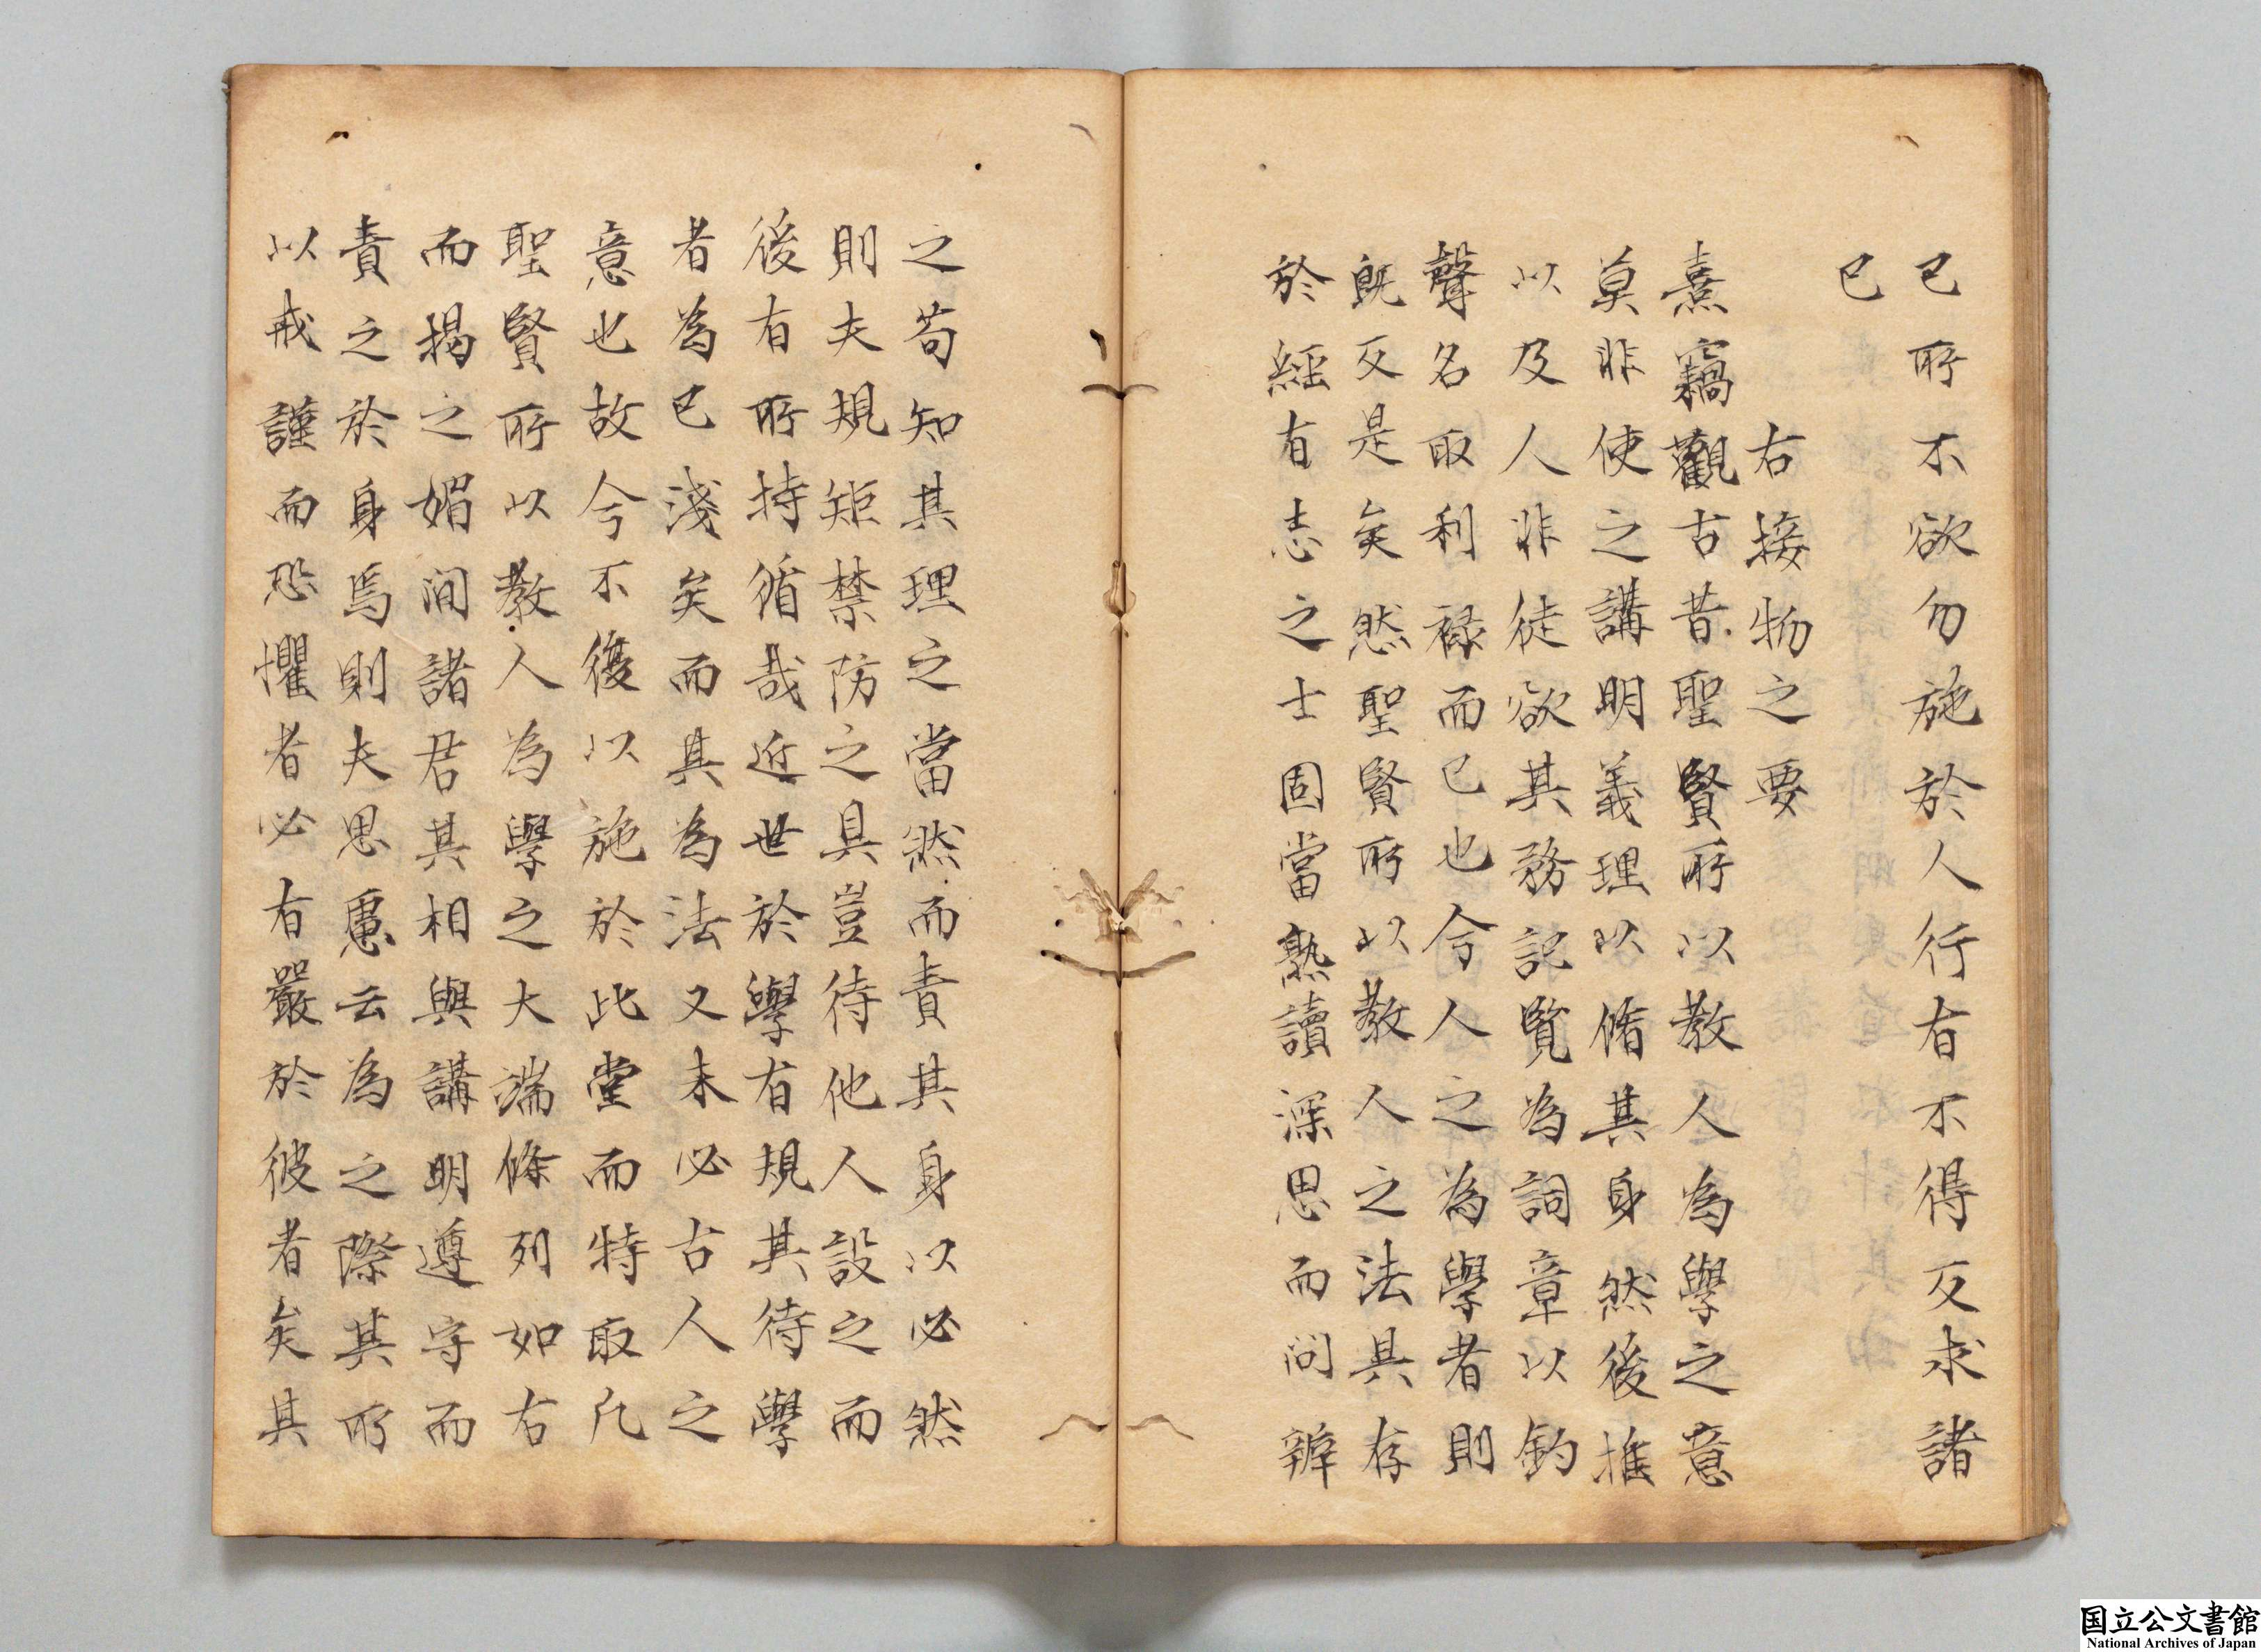 己所不欲勿施於人行有不得反求諸
己
右接物之要
熹竊觀古昔聖賢所以教人為學之意
莫非使之講明義理以脩其身然後推
以及人非徒欲其務記覽為詞章以釣
聲名取利祿而已也今人之為學者則
既反是矣然聖賢所以教人之法具存
於經有志之士固當熟讀深思而問辨
之苟知其理之當然而責其身以必然
則夫規矩禁防之具豈待他人設之而
後有所持循哉近世於學有規其待學
者為已淺矣而其為法又未必古人之
意也故今不復以施於此堂而特取凡
聖賢所以教人為學之大端條列如右
而揭之媚間諸君其相與講明遵守而
責之於身焉則夫思慮云為之際其所
以戒謹而恐懼者必有嚴於彼者矣其
国立公文書館
National Archives of Japan